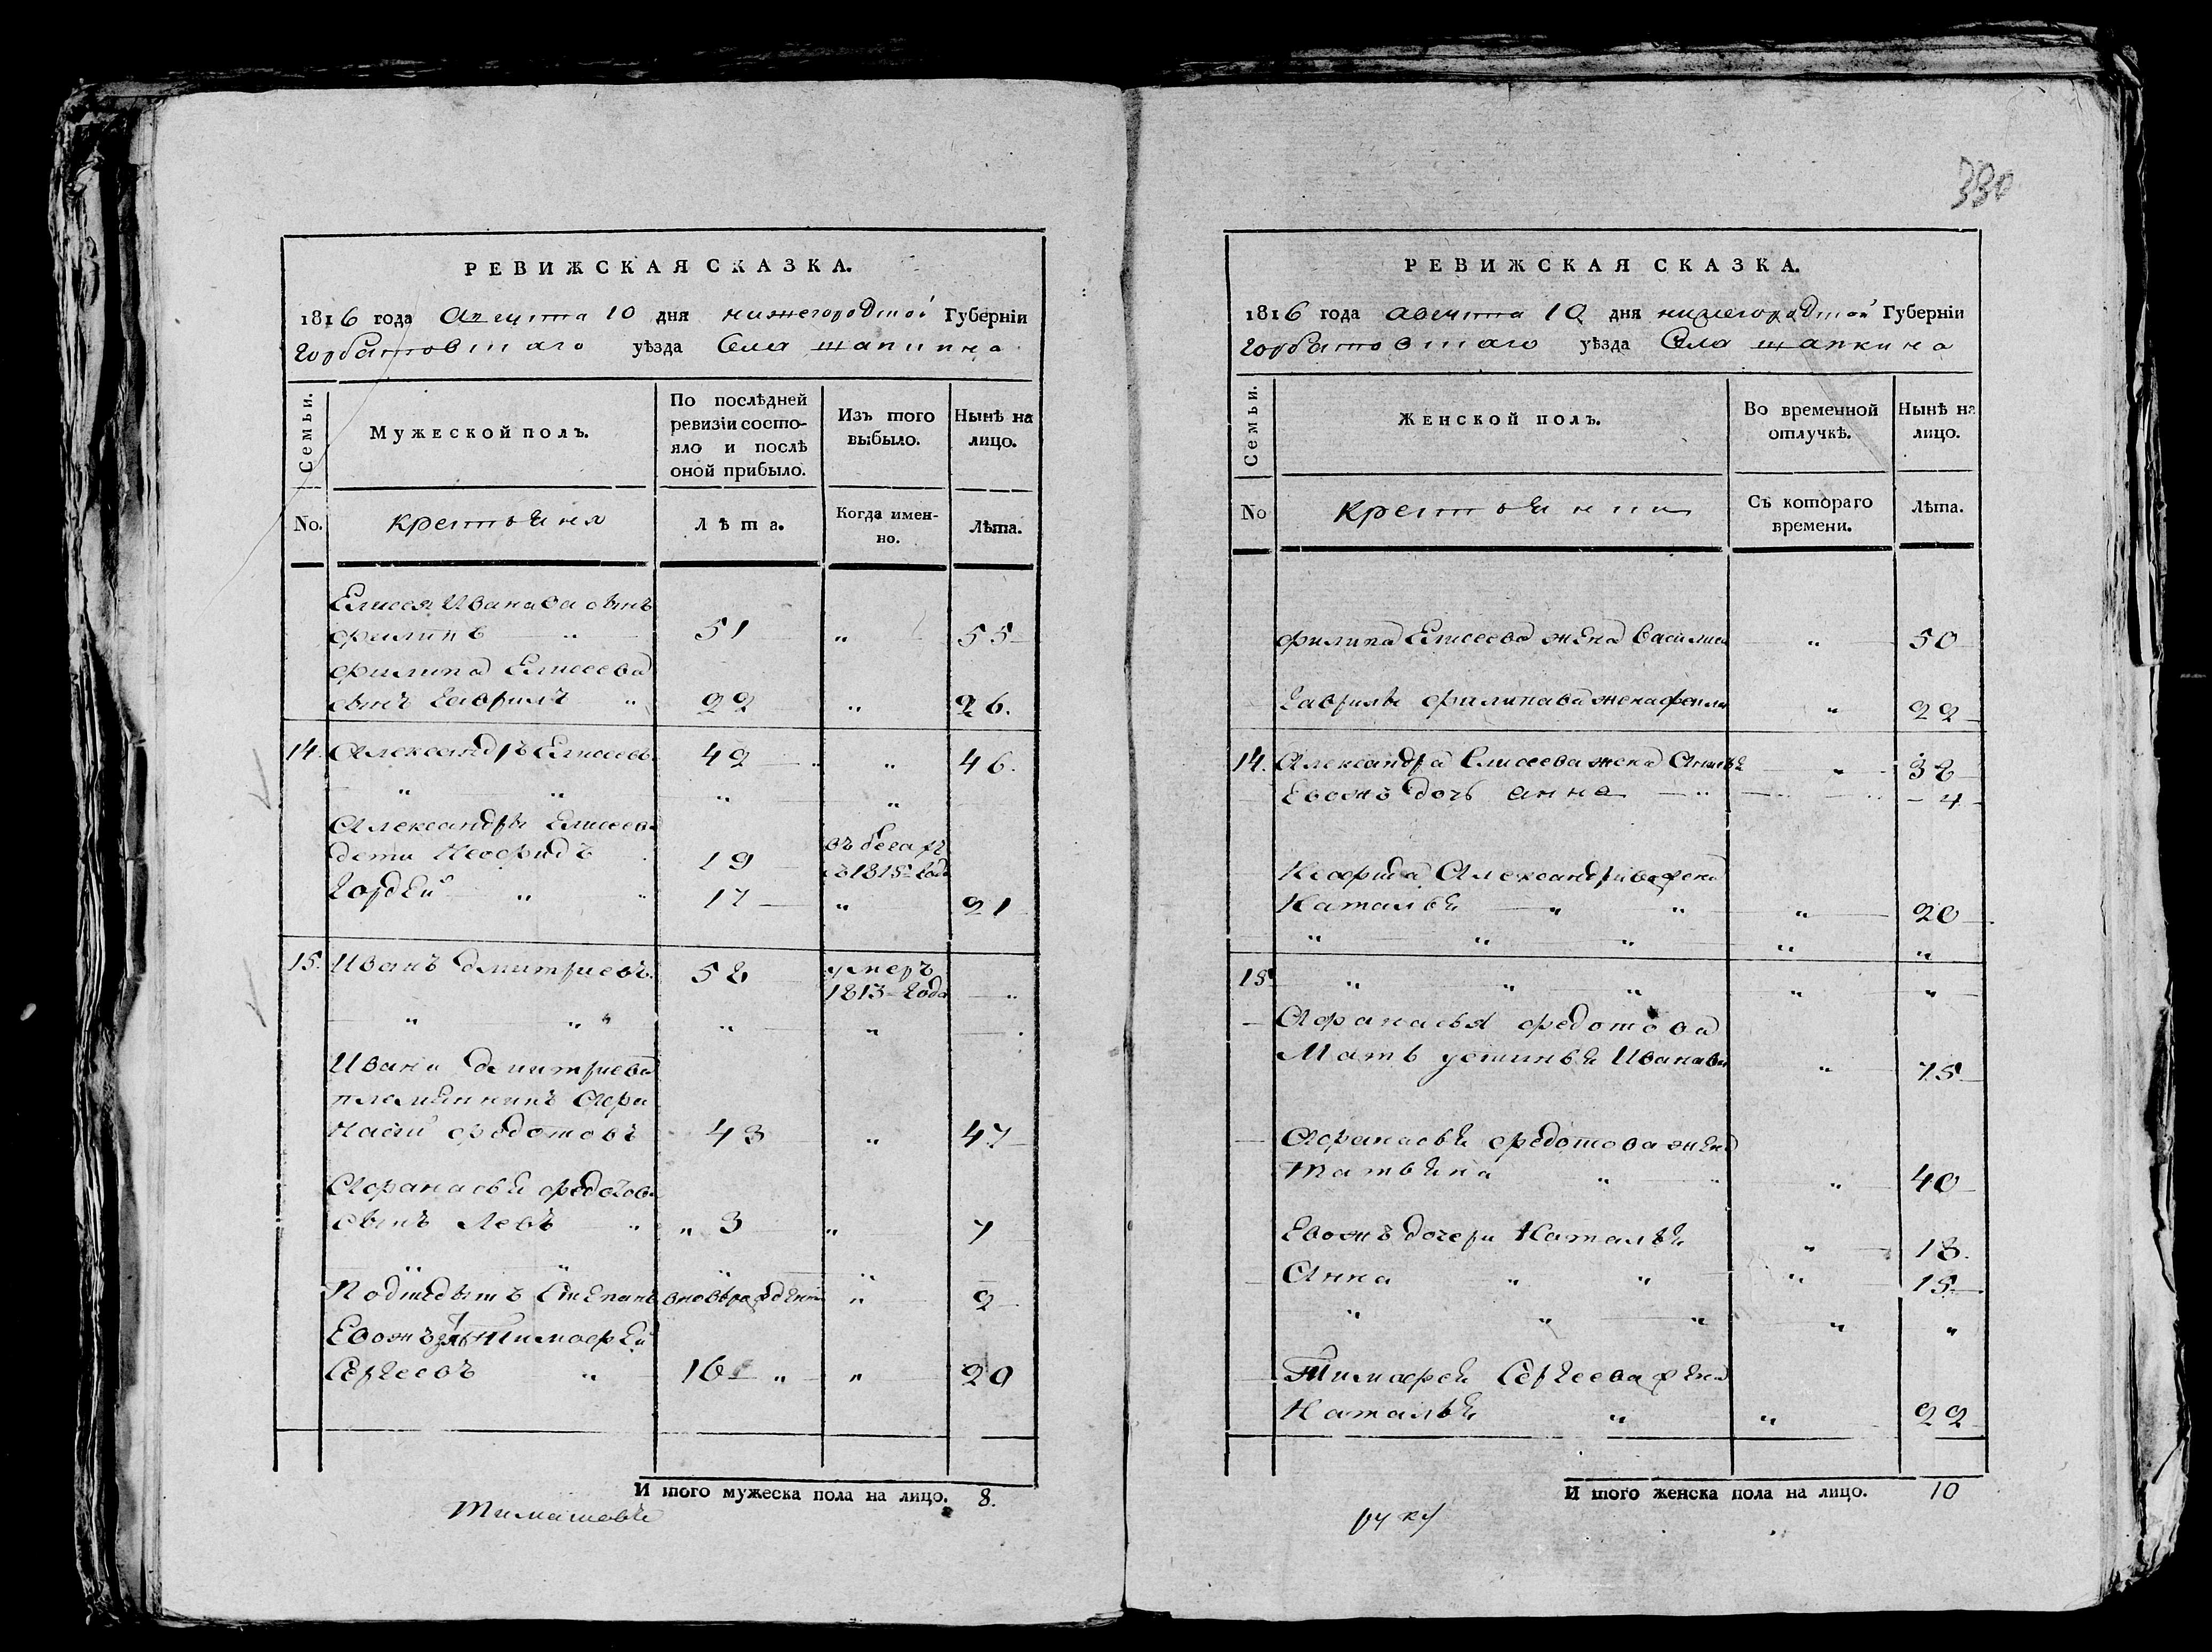 330
РЕВИЖСКАЯ СКАЗКА.
1816 года Августа 10 дня нижегородской Губерніи
Горбатовскаго уѣзда Села шапкина
Семьи.
Мужеской полъ.
По послѣдней ревизіи состояло и послѣ оной прибыло.
Изъ того выбыло.
Нынѣ на лицо.
No.
крестьяня
Лѣта.
Когда именно.
Лѣта.
Елисея Иванава сынъ
филипъ " 51 " 55
филипа Елисеева
сынъ Гаврилъ " 22 " 26.
14. Александръ Елисеевъ 42 " 46.
" " " "
Александры Елисеева
дети Неофидъ 19 въ бегахъ съ 1815 Года
Гордей " " 17 " 21
15. Иванъ дмитриевъ. 58 умеръ 1813 Года "
" " " " "
Ивана дмитриева
племянникъ Афа
насий федотовъ 43 " 47
Афанасья федотова
сынъ Левъ " " 3 " 7
" " " "
Степанъ вновь рожденъ " 2
Евонъ зять Тимофей
Сергеевъ " 16 " " 20
И того мужеска пола на лицо. 8.
РЕВИЖСКАЯ СКАЗКА.
1816 года августа 10 дня нижегородской Губерніи
горбатовскаго уѣзда Села шапкина
Семьи.
Женской полъ.
Во временной отлучкѣ.
Нынѣ на лицо.
No
Съ котораго времени.
Лѣта.
филипа Елисеева жена Василиса " 50
Гаврилы филипава жена " 22
14. Александра Елисеева жена " 38
Евонъ дочь анна " " 4
Неофида Александрова жена
Наталья " " " 20
" " " " "
15 " " " " "
Афанасья федотова
Мать устинья Иванава " 75
Афанасья федотова жена
Татьяна " " " 40
Евонъ дочери Наталья " 18.
Анна " " " 15
" " " " "
Тимофея Сергеева жена
Наталья " " 22
И того женска пола на лицо. 10
руку